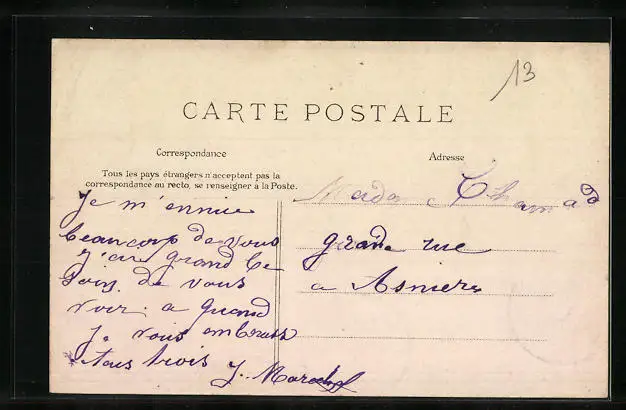 13
CARTE POSTALE
Correspondance
Adresse
Tous les pays étrangers n'acceptent pas la
correspondance au recto, se renseigner à la Poste.
je m'ennuie
beaucoup de vous
j'ai grand be
soin de vous
voir. a quand
je vous embrasse
tous trois
J. Marechal
Madame Chamad
grande rue
a Asnieres